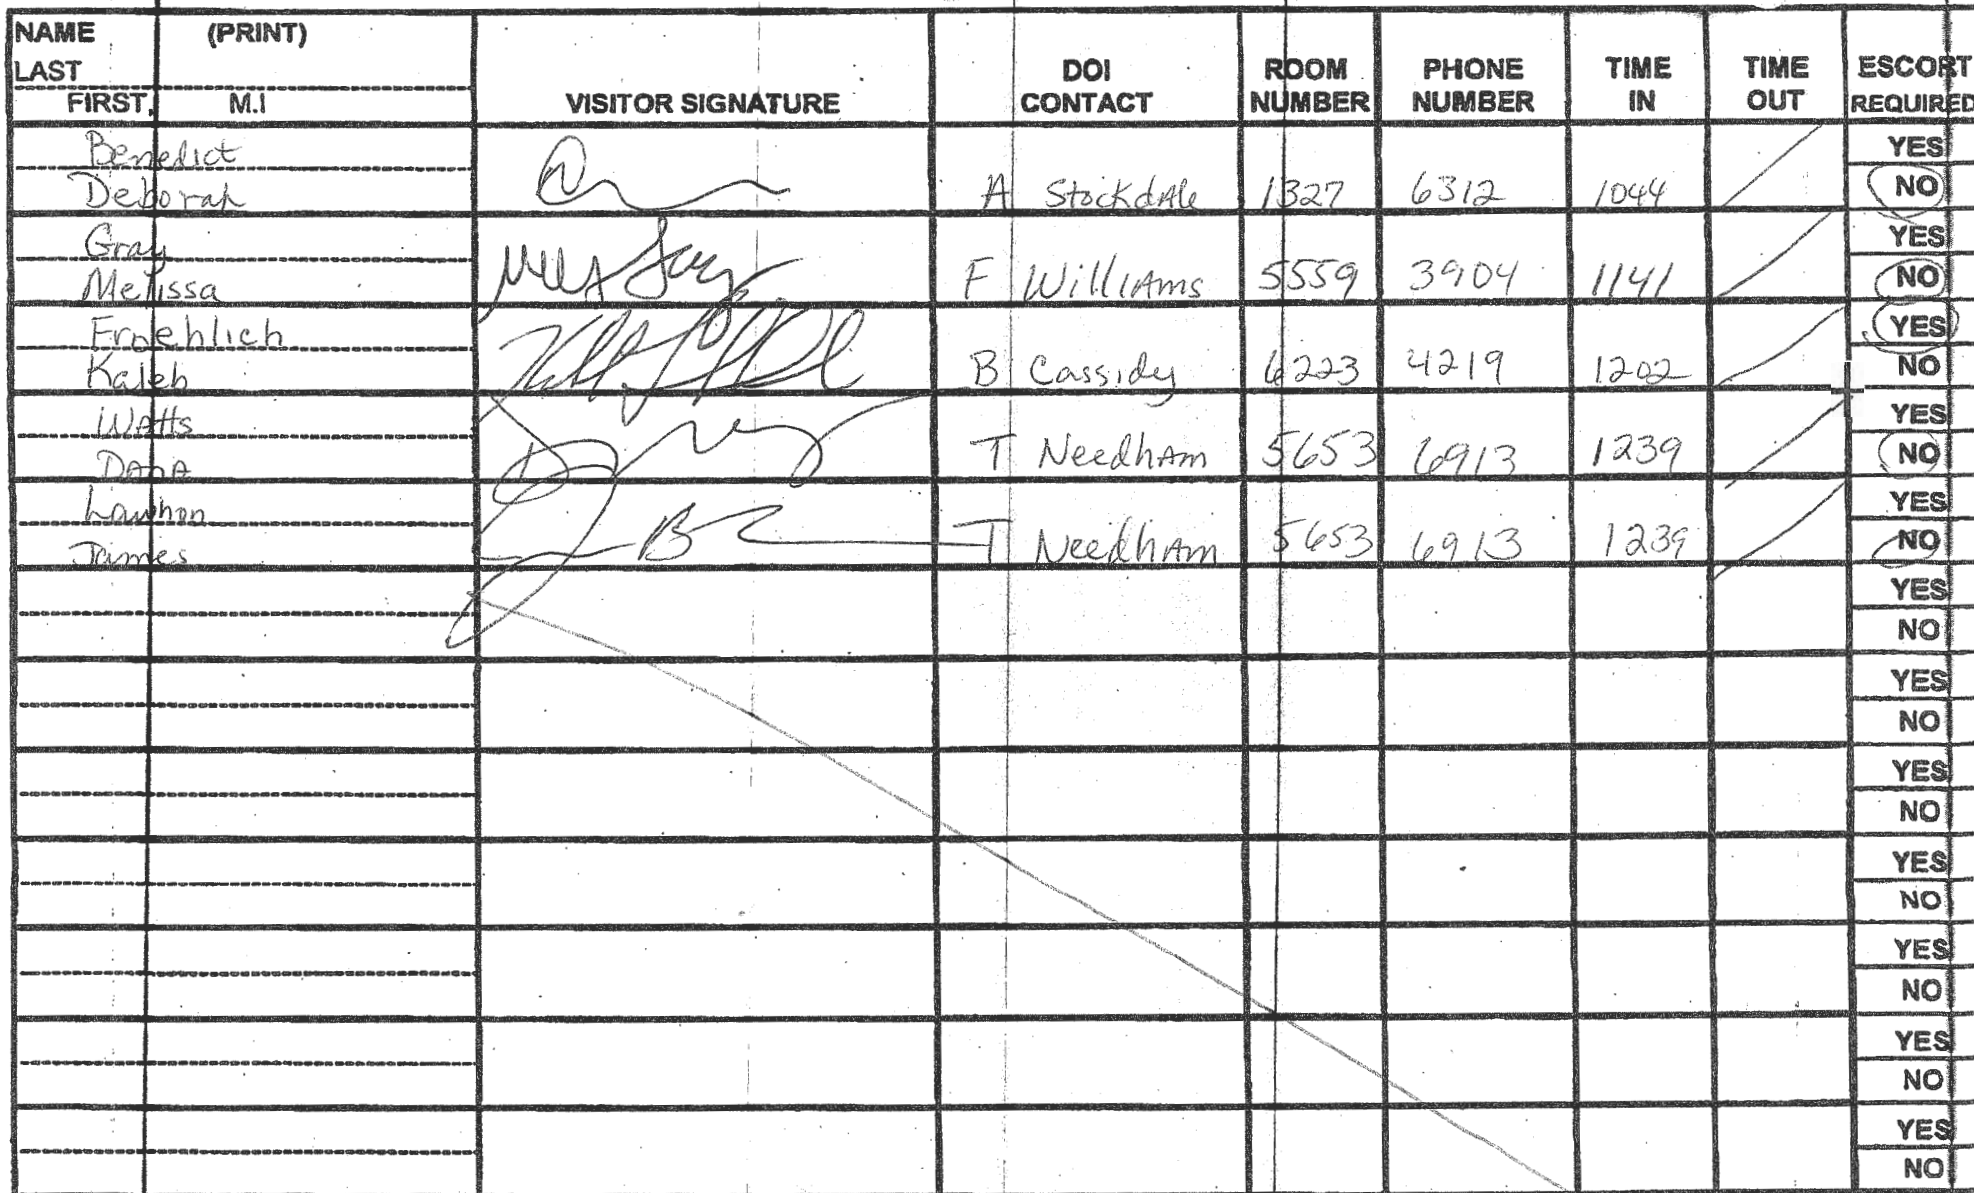 NAME (PRINT)
LAST
FIRST, M.I
VISITOR SIGNATURE
DOI CONTACT
ROOM NUMBER
PHONE NUMBER
TIME IN
TIME OUT
ESCORT REQUIRED
Benedict YES
Deborah A Stockdale 1327 6312 1044 NO
Gray YES
Melissa F Williams 5559 3904 1141 NO
Froehlich YES
Kaleb B Cassidy 6223 4219 1202 NO
Watts YES
Dana T Needham 5653 6913 1239 NO
Lawhon YES
James T Needham 5653 6913 1239 NO
YES
NO
YES
NO
YES
NO
YES
NO
YES
NO
YES
NO
YES
NO